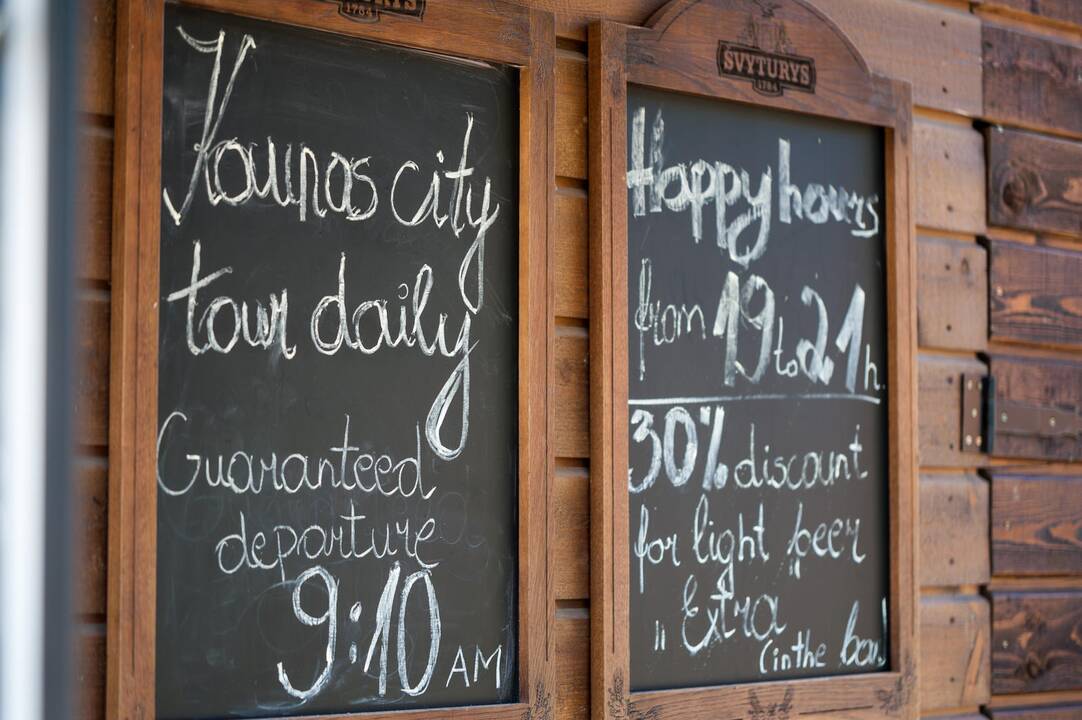 1784
Kaunas city
tour daily
Guaranteed
departure
9:10 AM
SVYTURYS
1784
Happy hours
from 19 to 21 h.
30% discount
for light beer
„ Extra
(in the